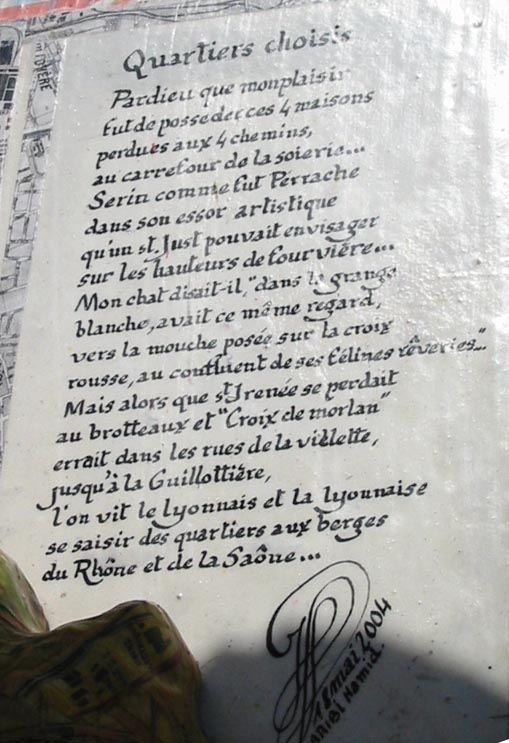 Quartiers choisis
Pardieu que monplaisir
fut de posseder ces 4 maisons
perdues aux 4 chemins,
au carrefour de la soierie...
Serin comme fut Pérrache
dans son essor artistique
qu'un st Just pouvait envisager
sur les hauteurs de fourvière...
Mon chat disait-il, "dans la grange
blanche, avait ce même regard,
vers la mouche posée sur la croix
rousse, au confluent de ses félines rêveries..."
Mais alors que st Irenée se perdait
au brotteaux et "Croix de morlan"
errait dans les rues de la villette,
jusqu'à la Guillottière,
l'on vit le lyonnais et la lyonnaise
se saisir des quartiers aux berges
du Rhône et de la Saône...
mai 2004
Hamid.